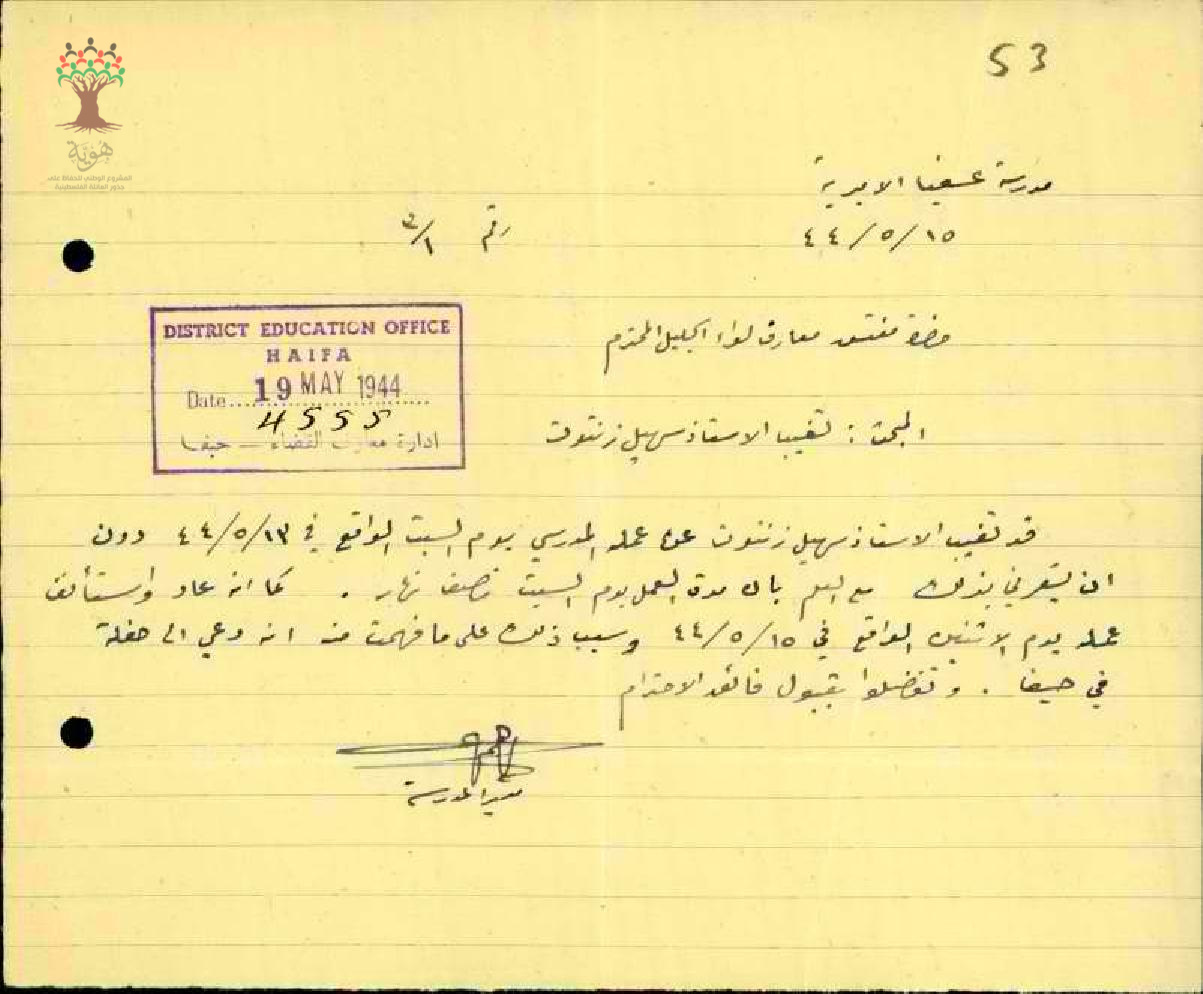 53
هوية
المشروع الوطني للحفاظ على
جذور العائلة الفلسطينية
مدرسة عسفيا الاميرية
١٥/٥/٤٤
رقم
DISTRICT EDUCATION OFFICE
HAIFA
Date....19 MAY 1944
4555
ادارة معارف القضاء — حيفا
حضرة مفتش معارف لواء الجليل المحترم
المبحث : تغيب الاستاذ سهيل زنتوت
قد تغيب الاستاذ سهيل زنتوت عن عمله المدرسي يوم السبت الواقع في ١٣/٥/٤٤ دون
ان يشعرني بذلك مع العلم بان مدة العمل يوم السبت نصف نهار . كما انه عاد واستأنف
عمله يوم الاثنين الواقع في ١٥/٥/٤٤ وسبب ذلك على ما فهمت منه انه دعي الى حفلة
في حيفا . وتفضلوا بقبول فائق الاحترام
مدير المدرسة